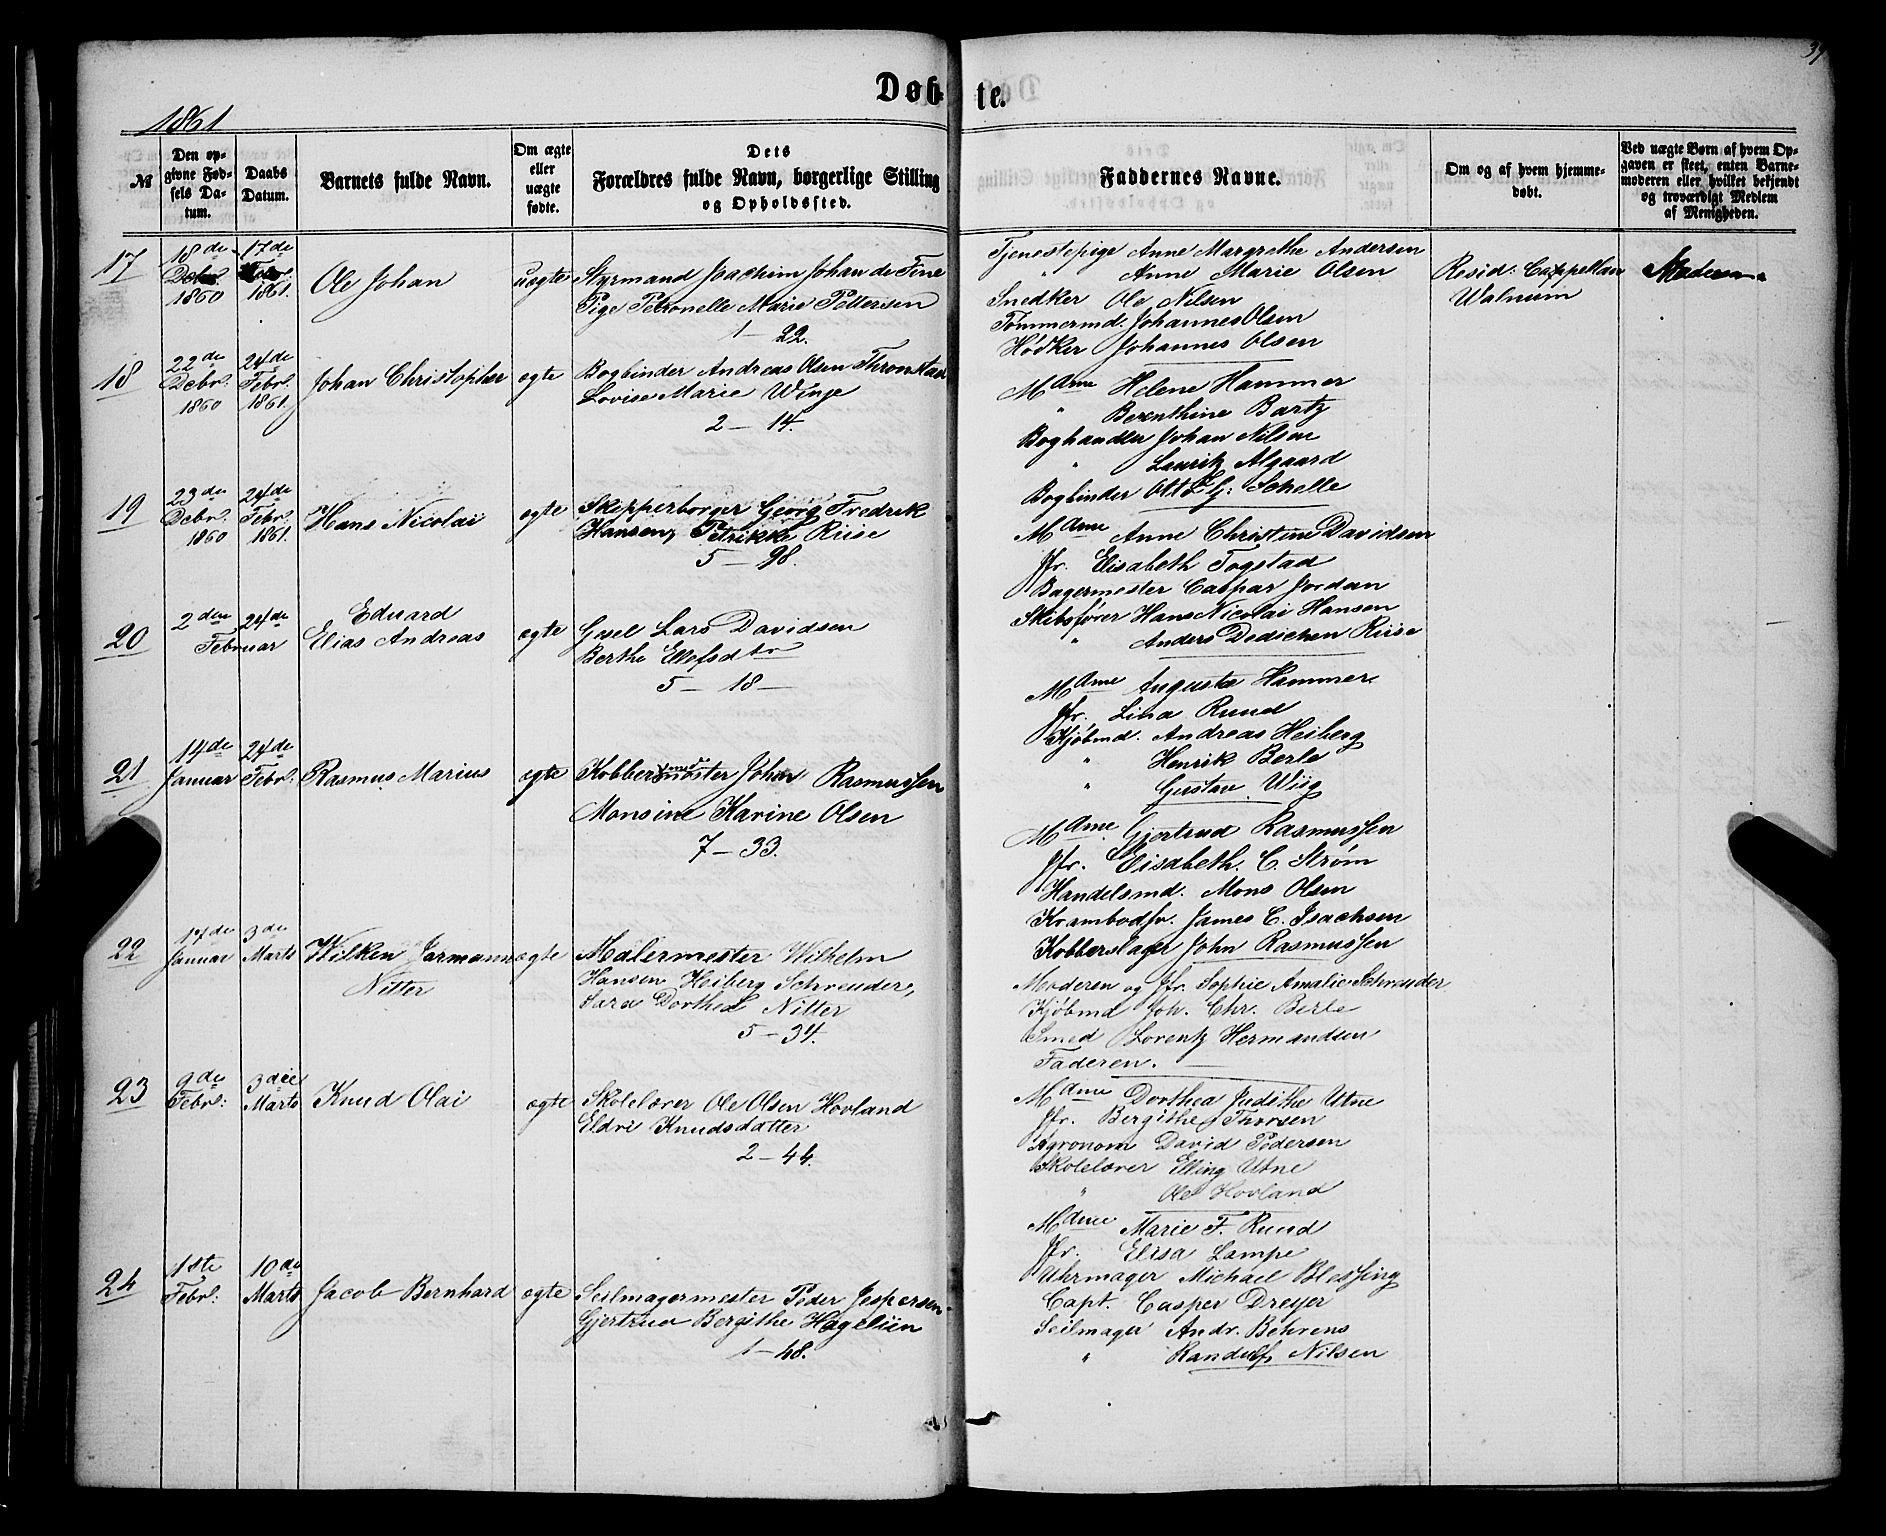 39
Døb-te.
1861
№
Den op-
givne Fød-
sels Da-
tum.
Daabs
Datum.
Barnets fulde Navn.
Om ægte
eller
uægte
fødte.
Dets
Forældres fulde Navn, borgerlige Stilling
og Opholdssted.
Faddernes Navne.
Om og af hvem hjemme-
døbt.
Ved uægte Børn af hvem Op-
gaven er skeet, enten Barne-
moderen eller hvilket bekjendt
og troværdigt Medlem
af Menigheden.
17
18de
Debr.
1860
17de
Febr.
1861.
Ole Johan
uægte
Styrmand Joachim Johan de Fine
Pige Petronelle Marie Pettersen
1 - 22.
Tjenestepige Anne Margrethe Andersen
" Anne Marie Olsen
Snedker Ole Nilsen
Tømmermd. Johannes Olsen
Hødker Johannes Olsen
Resid: Cappellan
Walnum
Moderen
18
22de
Debr.
1860
24de
Febr.
1861.
Johan Christopher
ægte
Bogbinder Andreas Olsen Thronstad
Lovise Marie Winje
2 - 14.
Mdme Helene Hammer
" Berenthine Bartz
Boghandler Johan Nilsen
" Lauritz Algaard
Bogbinder Otto G: Schelle
19
23de
Debr.
1860
24de
Febr.
1861.
Hans Nicolai
ægte
Skipperborger Georg Fredrik
Hansen, Petrikke Riise
5 - 98.
Mdme Anne Christine Davidsen
Jfr. Elisabeth Togstad
Bagermester Caspar Jordan
Skibsfører Hans Nicolai Hansen
" Anders Dedichen Riise
20
2den
24de
Februar
Eduard
Elias Andreas
ægte
Gsel Lars Davidsen
Berthe Ellefsdtr
5 - 18 -
Mdme Augusta Hammer
Jfr. Lina Ruud
Kjøbmd. Andreas Heiberg
" Henrik Berle
" Gustav Wiig
21
14de
Januar
24de
Febr.
Rasmus Marius
ægte
Kobbersmedmester Johan Rasmussen
Monsine Karine Olsen
7 - 33.
Mdme Gjertrud Rasmussen
Jfr. Elisabeth. C. Strøm
Handelsmd. Mons Olsen
Krambodsv. James C. Isachsen
Kobberslager John Rasmussen
22
17de
Januar
3die
Marts
Wilken Jarmann
Nitter
ægte
Malermester Wilhelm
Hansen Heiberg Schreuder,
Sara Dorthea Nitter
5 - 34.
Moderen og Jfr. Sophie Amalie Schreuder
Kjøbmd Joh. Chr. Berle
Smed Lorentz Hermandsen
Faderen.
23
9de
Febr:
3die
Marts
Knud Olai
ægte
Skolelærer Ole Olsen Hovland
Eldri Knudsdatter
2 - 44.
Mdme Dorthea Judithe Utne
Jfr. Bergithe Thorsen
Agronom David Pedersen
Skolelærer Elling Utne
" Ole Hovland
24
1ste
Febr:
10de
Marts
Jacob Bernhard
ægte
Seilmagermester Peder Jespersen
Gjertrud Bergithe Hageliin
1 - 48.
Mdme Marie F. Ruud
Jfr. Elisa Lampe
Uhrmager Michael Blessing
Capt. Casper Dreyer
Seilmager Andr. Behrens
" Randulf Nilsen